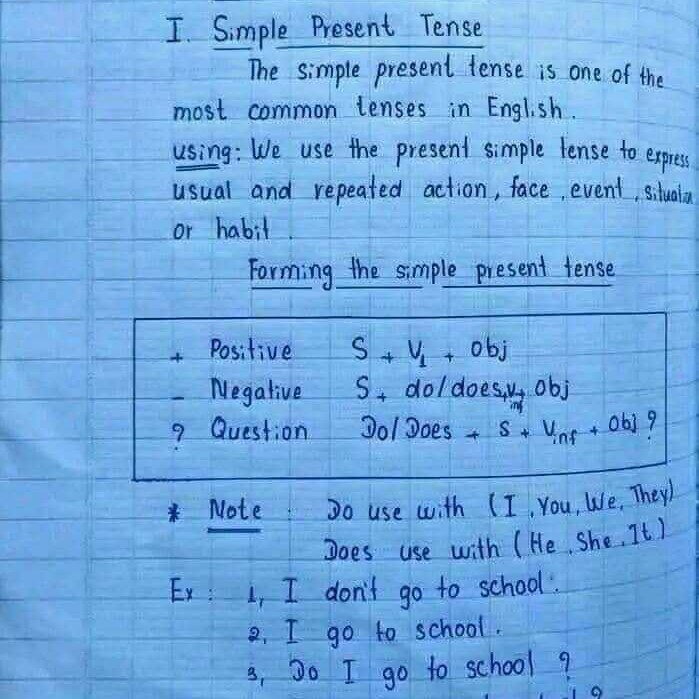 I. Simple Present Tense
The simple present tense is one of the
most common tenses in English.
using: We use the present simple tense to express
usual and repeated action, face, event, situation
or habit.
Forming the simple present tense
+ Positive S + V1 + obj
- Negative S + do/does + V inf + obj
? Question Do/Does + S + Vinf + Obj ?
* Note : Do use with (I, You, We, They)
Does use with (He, She, It)
Ex : 1, I don't go to school.
2, I go to school.
3, Do I go to school ?